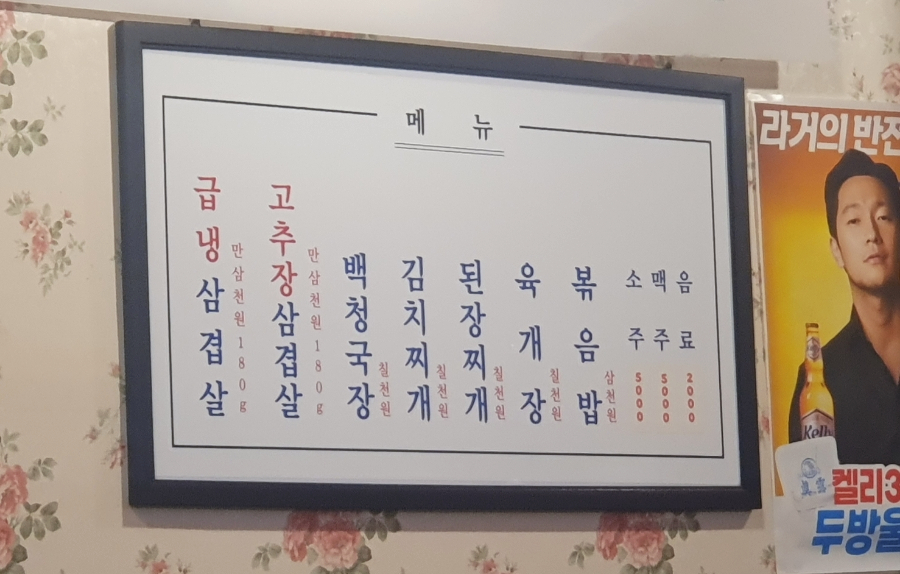 메 뉴
급냉삼겹살
만삼천원180g
고추장삼겹살
만삼천원180g
백청국장
칠천원
김치찌개
칠천원
된장찌개
칠천원
육개장
칠천원
볶음밥
삼천원
소주
5000
맥주
5000
음료
2000
라거의 반전
Kelly
켈리3
두방울